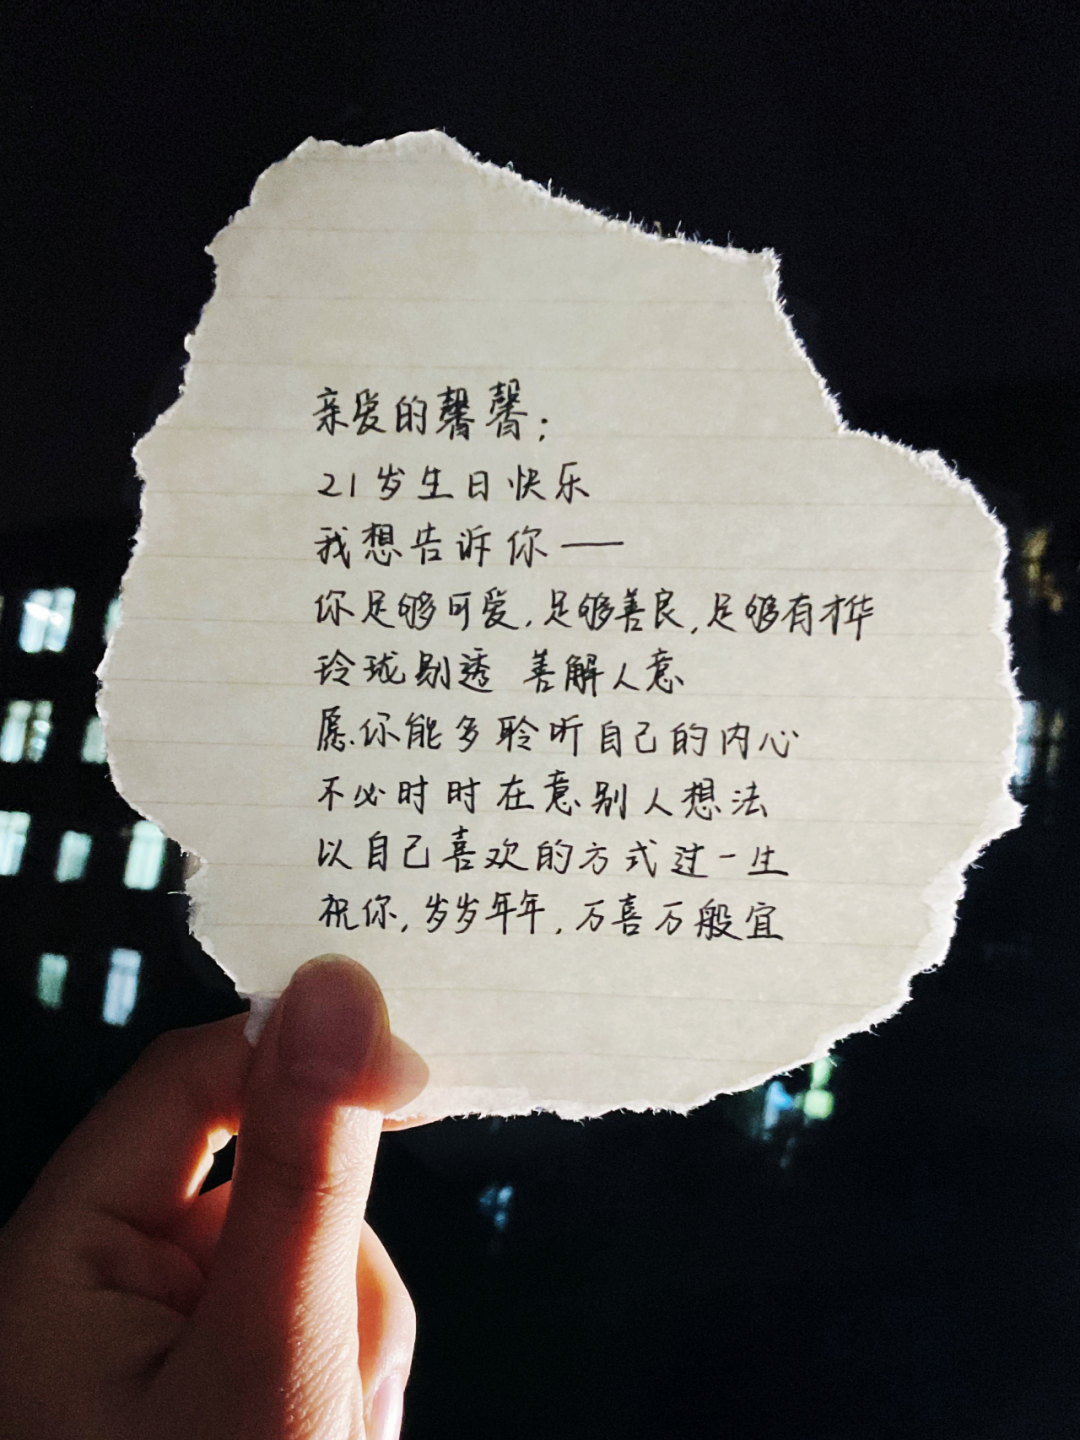 亲爱的馨馨：
21岁生日快乐
我想告诉你——
你足够可爱，足够善良，足够有才华
玲珑剔透 善解人意
愿你能多聆听自己的内心
不必时时在意别人想法
以自己喜欢的方式过一生
祝你，岁岁年年，万喜万般宜